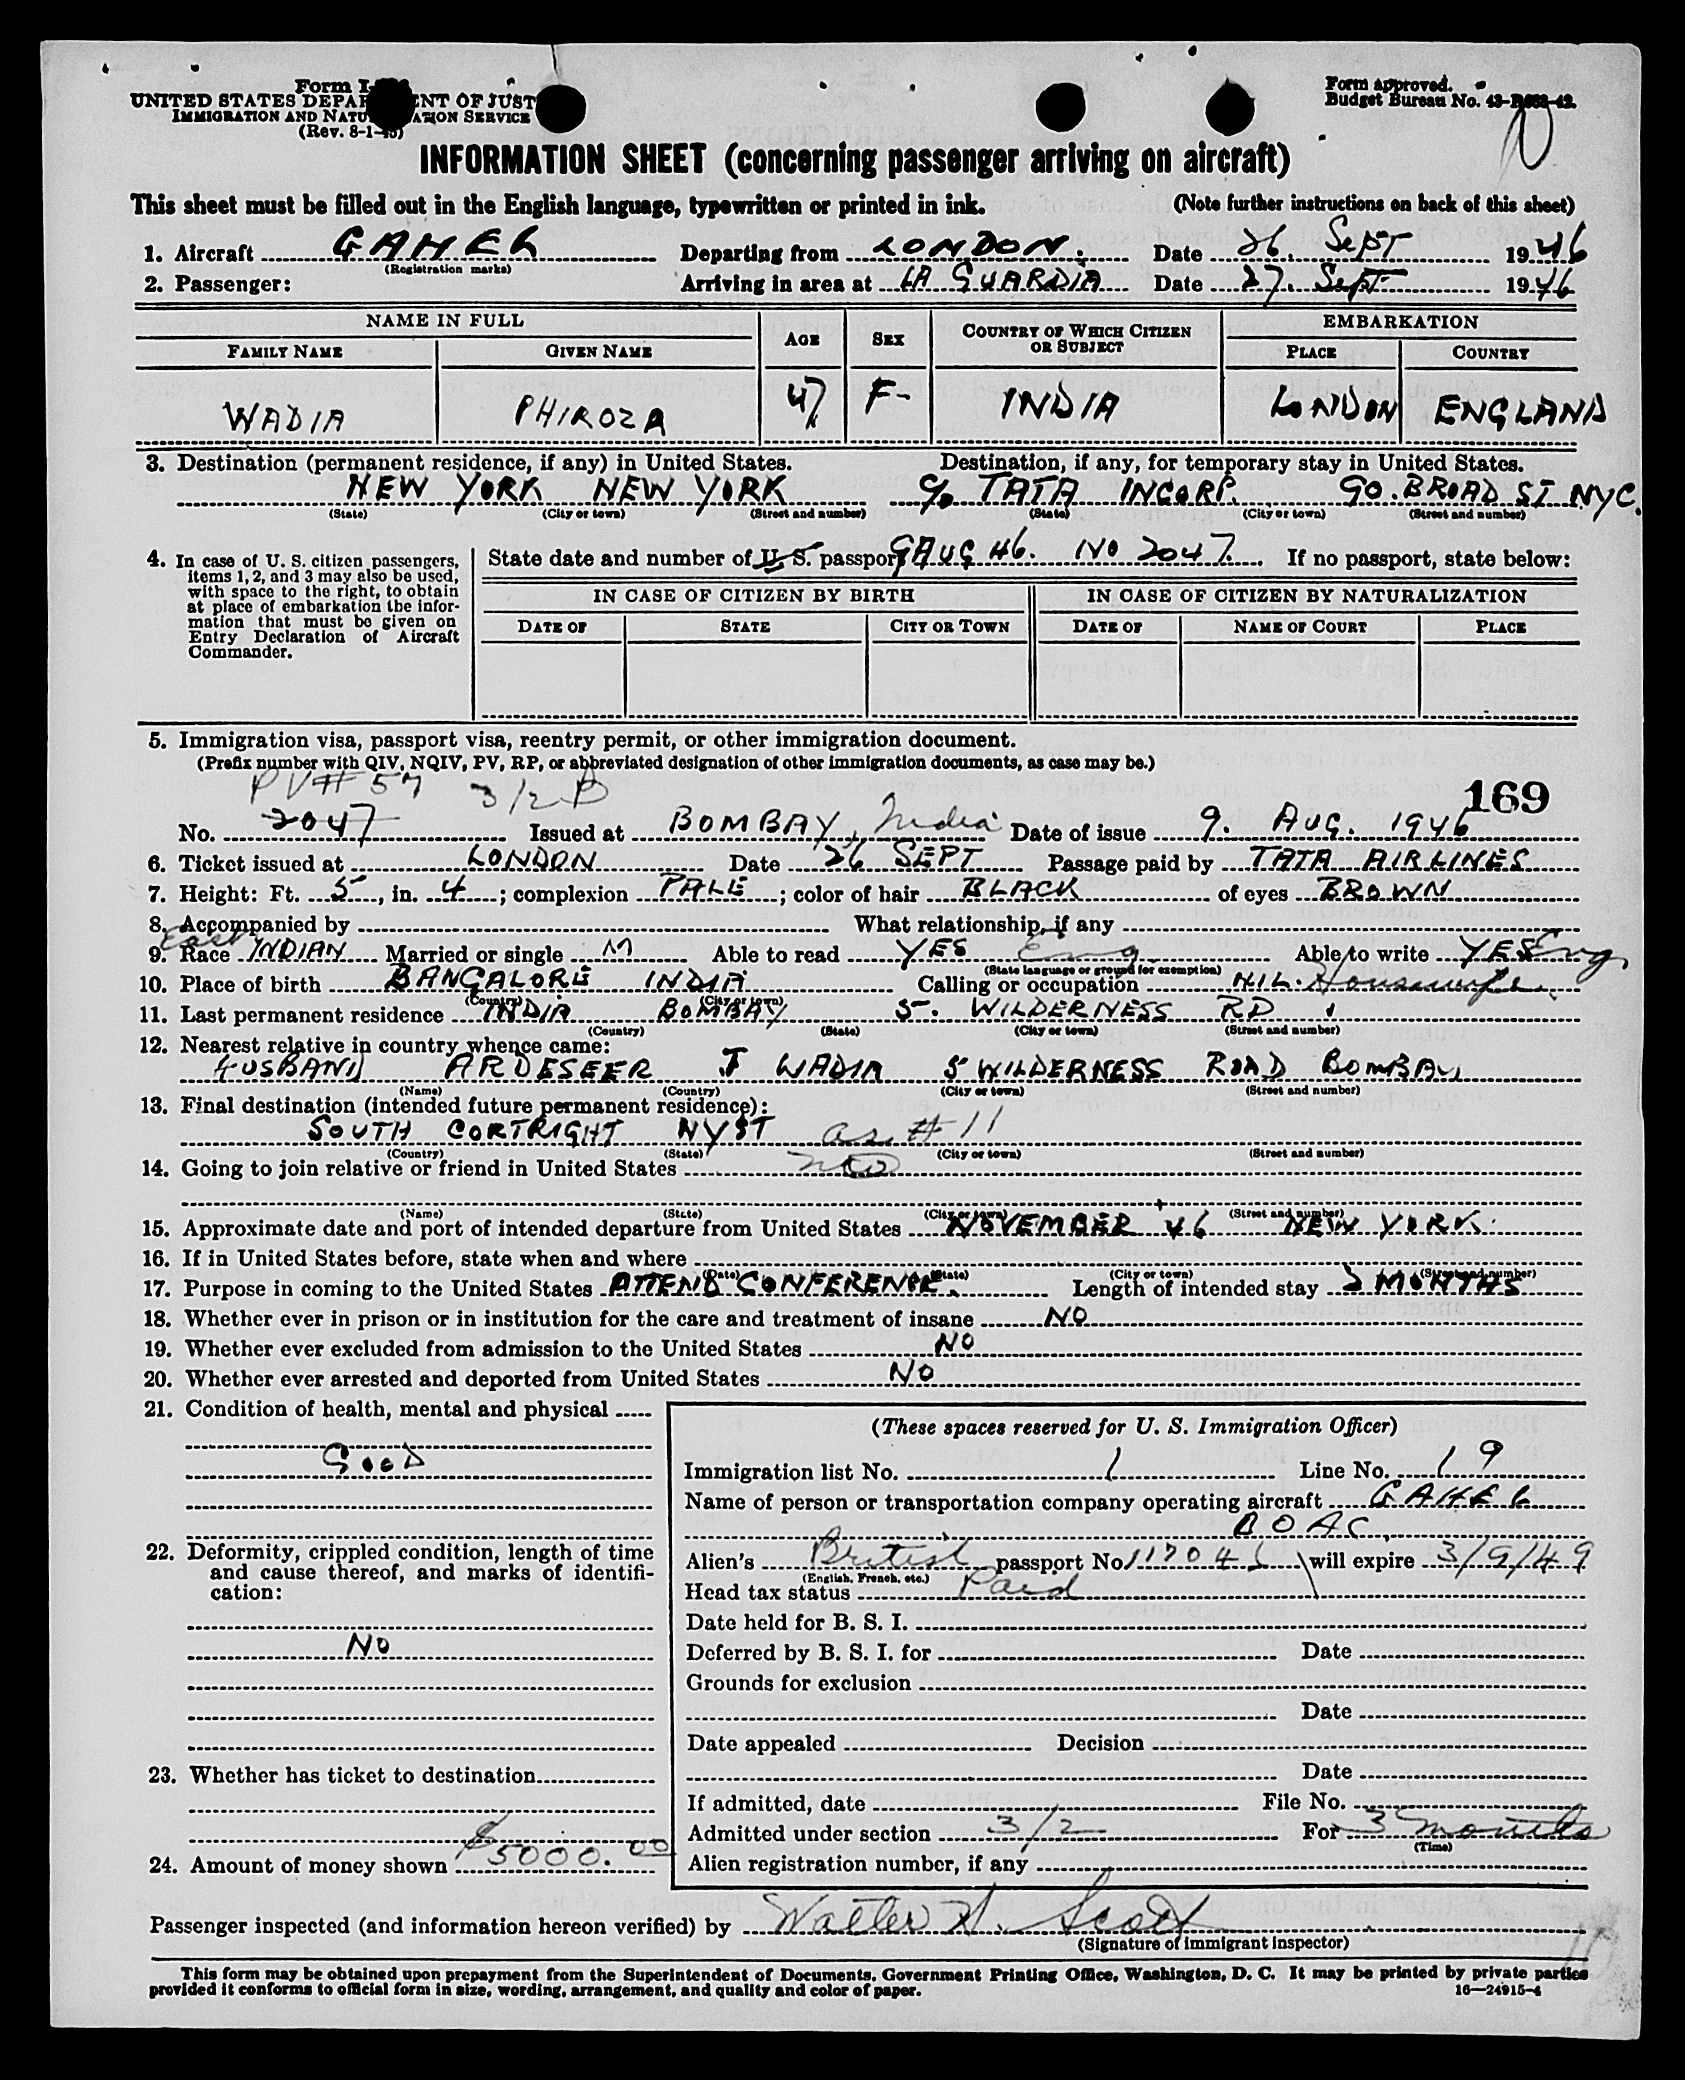 Form I-
UNITED STATES DEPARTMENT OF JUSTICE
IMMIGRATION AND NATURALIZATION SERVICE
(Rev. 8-1-45)
Form approved.
Budget Bureau No. 43-
INFORMATION SHEET (concerning passenger arriving on aircraft)
This sheet must be filled out in the English language, typewritten or printed in ink. (Note further instructions on back of this sheet)
1. Aircraft GAHEL Departing from LONDON. Date 26. Sept 1946
(Registration marks)
2. Passenger: Arriving in area at LA GUARDIA Date 27. Sept 1946
NAME IN FULL AGE SEX COUNTRY OF WHICH CITIZEN OR SUBJECT EMBARKATION
FAMILY NAME GIVEN NAME PLACE COUNTRY
WADIA PHIROZA 47 F- INDIA LONDON ENGLAND
3. Destination (permanent residence, if any) in United States. Destination, if any, for temporary stay in United States.
NEW YORK NEW YORK c/o TATA INCORP. 90. BROAD ST NYC.
(State) (City or town) (Street and number) (State) (City or town) (Street and number)
4. In case of U. S. citizen passengers, items 1, 2, and 3 may also be used, with space to the right, to obtain at place of embarkation the information that must be given on Entry Declaration of Aircraft Commander.
State date and number of U. S. passport 9 AUG 46. No 2047. If no passport, state below:
IN CASE OF CITIZEN BY BIRTH IN CASE OF CITIZEN BY NATURALIZATION
DATE OF STATE CITY OR TOWN DATE OF NAME OF COURT PLACE
5. Immigration visa, passport visa, reentry permit, or other immigration document.
(Prefix number with QIV, NQIV, PV, RP, or abbreviated designation of other immigration documents, as case may be.)
PV# 57 3/2 B 169
No. 2047 Issued at BOMBAY, India Date of issue 9. AUG. 1946
6. Ticket issued at LONDON Date 26 SEPT Passage paid by TATA AIRLINES
7. Height: Ft. 5, in. 4; complexion PALE; color of hair BLACK of eyes BROWN
8. Accompanied by What relationship, if any
9. Race East INDIAN Married or single M Able to read YES Eng Able to write YES Eng
(State language or ground for exemption)
10. Place of birth BANGALORE INDIA Calling or occupation NIL. Housewife
(Country) (City or town)
11. Last permanent residence INDIA BOMBAY 5. WILDERNESS RD
(Country) (State) (City or town) (Street and number)
12. Nearest relative in country whence came:
HUSBAND ARDESEER J WADIA 5 WILDERNESS ROAD BOMBAY
(Name) (Country) (City or town) (Street and number)
13. Final destination (intended future permanent residence):
SOUTH CORTRIGHT NYST as # 11
(Country) (State) (City or town) (Street and number)
14. Going to join relative or friend in United States
(Name) (State) (City or town) (Street and number)
15. Approximate date and port of intended departure from United States NOVEMBER 46 NEW YORK.
16. If in United States before, state when and where
(Date) (State) (City or town) (Street and number)
17. Purpose in coming to the United States ATTEND CONFERENCE. Length of intended stay 2 MONTHS
18. Whether ever in prison or in institution for the care and treatment of insane NO
19. Whether ever excluded from admission to the United States NO
20. Whether ever arrested and deported from United States NO
21. Condition of health, mental and physical
GOOD
22. Deformity, crippled condition, length of time and cause thereof, and marks of identification:
NO
23. Whether has ticket to destination
24. Amount of money shown $5000.00
(These spaces reserved for U. S. Immigration Officer)
Immigration list No. 1 Line No. 19
Name of person or transportation company operating aircraft GAHEL
BOAC
Alien's British passport No. will expire 3/9/49
(English, French, etc.)
Head tax status Paid
Date held for B. S. I.
Deferred by B. S. I. for Date
Grounds for exclusion
Date
Date appealed Decision
Date
If admitted, date File No.
Admitted under section 3/2 For 3 months
(Time)
Alien registration number, if any
Passenger inspected (and information hereon verified) by Walter H. Scott
(Signature of immigrant inspector)
This form may be obtained upon prepayment from the Superintendent of Documents, Government Printing Office, Washington, D. C. It may be printed by private parties
provided it conforms to official form in size, wording, arrangement, and quality and color of paper. 16—24915-4